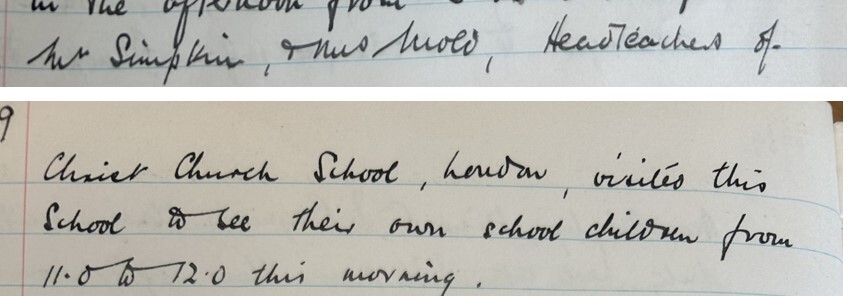 in the afternoon from
Mr Simpkin, & Mrs Mold, Headteachers of
9
Christ Church School, London, visited this
School to see their own school children from
11.0 to 12.0 this morning.